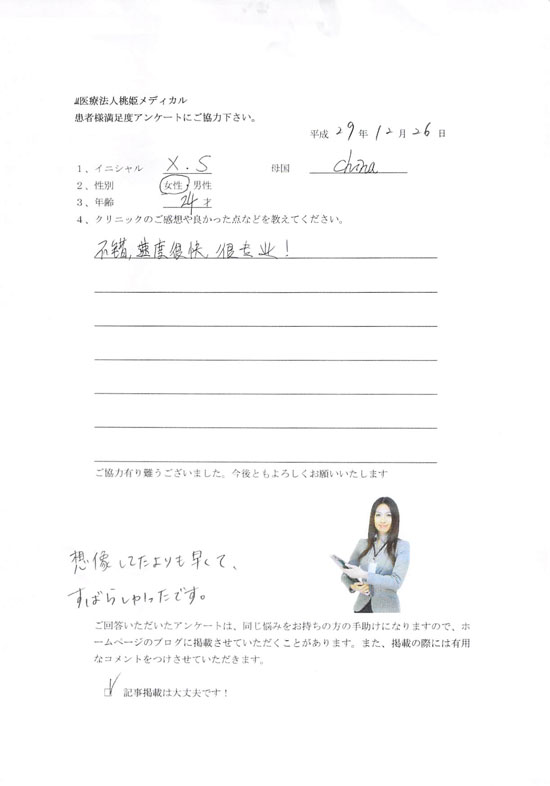 医療法人桃姫メディカル
患者様満足度アンケートにご協力下さい。
平成 29 年 12 月 26 日
1、イニシャル X.S 母国 china
2、性別 女性・男性
3、年齢 24 才
4、クリニックのご感想や良かった点などを教えてください。
不错,速度很快,很专业!
ご協力有り難うございました。今後ともよろしくお願いいたします
想像してたよりも早くて、
すばらしかったです。
ご回答いただいたアンケートは、同じ悩みをお持ちの方の手助けになりますので、ホ
ームページのブログに掲載させていただくことがあります。また、掲載の際には有用
なコメントをつけさせていただきます。
☑ 記事掲載は大丈夫です!